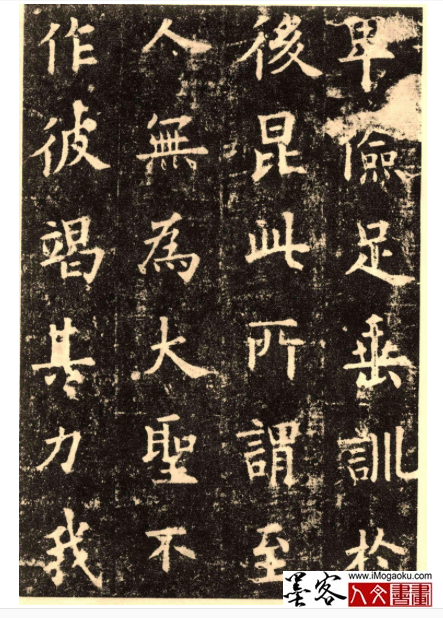 卑儉足垂訓於
後昆此所謂至
人無為大聖不
作彼竭其力我
墨客
www.iMogaoku.com
人文書畫